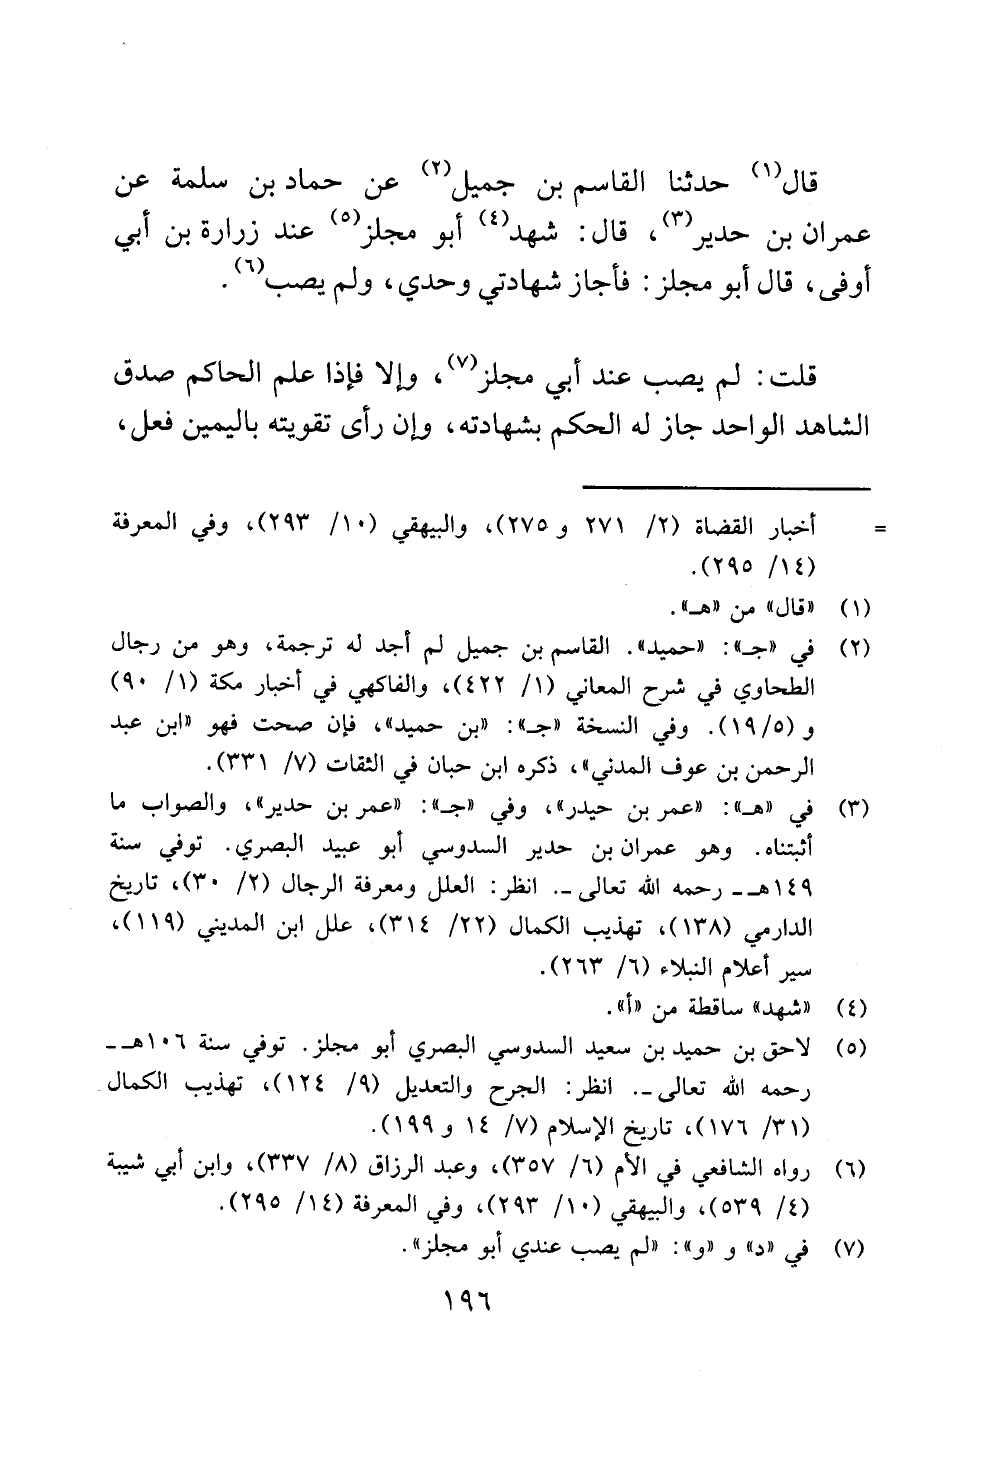 قال(١) حدثنا القاسم بن جميل(٢) عن حماد بن سلمة عن
عمران بن حدير(٣)، قال: شهد(٤) أبو مجلز(٥) عند زرارة بن أبي
أوفى، قال أبو مجلز: فأجاز شهادتي وحدي، ولم يصب(٦).
قلت: لم يصب عند أبي مجلز(٧)، وإلا فإذا علم الحاكم صدق
الشاهد الواحد جاز له الحكم بشهادته، وإن رأى تقويته باليمين فعل،
= أخبار القضاة (٢/ ٢٧١ و ٢٧٥)، والبيهقي (١٠/ ٢٩٣)، وفي المعرفة
(١٤/ ٢٩٥).
(١) «قال» من «هـ».
(٢) في «جـ»: «حميد». القاسم بن جميل لم أجد له ترجمة، وهو من رجال
الطحاوي في شرح المعاني (١/ ٤٢٢)، والفاكهي في أخبار مكة (١/ ٩٠)
و (١٩/٥). وفي النسخة «جـ»: «بن حميد»، فإن صحت فهو «ابن عبد
الرحمن بن عوف المدني»، ذكره ابن حبان في الثقات (٧/ ٣٣١).
(٣) في «هـ»: «عمر بن حيدر»، وفي «جـ»: «عمر بن حدير»، والصواب ما
أثبتناه. وهو عمران بن حدير السدوسي أبو عبيد البصري. توفي سنة
١٤٩هـ ـ رحمه الله تعالى ـ. انظر: العلل ومعرفة الرجال (٢/ ٣٠)، تاريخ
الدارمي (١٣٨)، تهذيب الكمال (٢٢/ ٣١٤)، علل ابن المديني (١١٩)،
سير أعلام النبلاء (٦/ ٢٦٣).
(٤) «شهد» ساقطة من «أ».
(٥) لاحق بن حميد بن سعيد السدوسي البصري أبو مجلز. توفي سنة ١٠٦هـ ـ
رحمه الله تعالى ـ. انظر: الجرح والتعديل (٩/ ١٢٤)، تهذيب الكمال
(٣١/ ١٧٦)، تاريخ الإسلام (٧/ ١٤ و ١٩٩).
(٦) رواه الشافعي في الأم (٦/ ٣٥٧)، وعبد الرزاق (٨/ ٣٣٧)، وابن أبي شيبة
(٤/ ٥٣٩)، والبيهقي (١٠/ ٢٩٣)، وفي المعرفة (١٤/ ٢٩٥).
(٧) في «د» و «و»: «لم يصب عندي أبو مجلز».
١٩٦